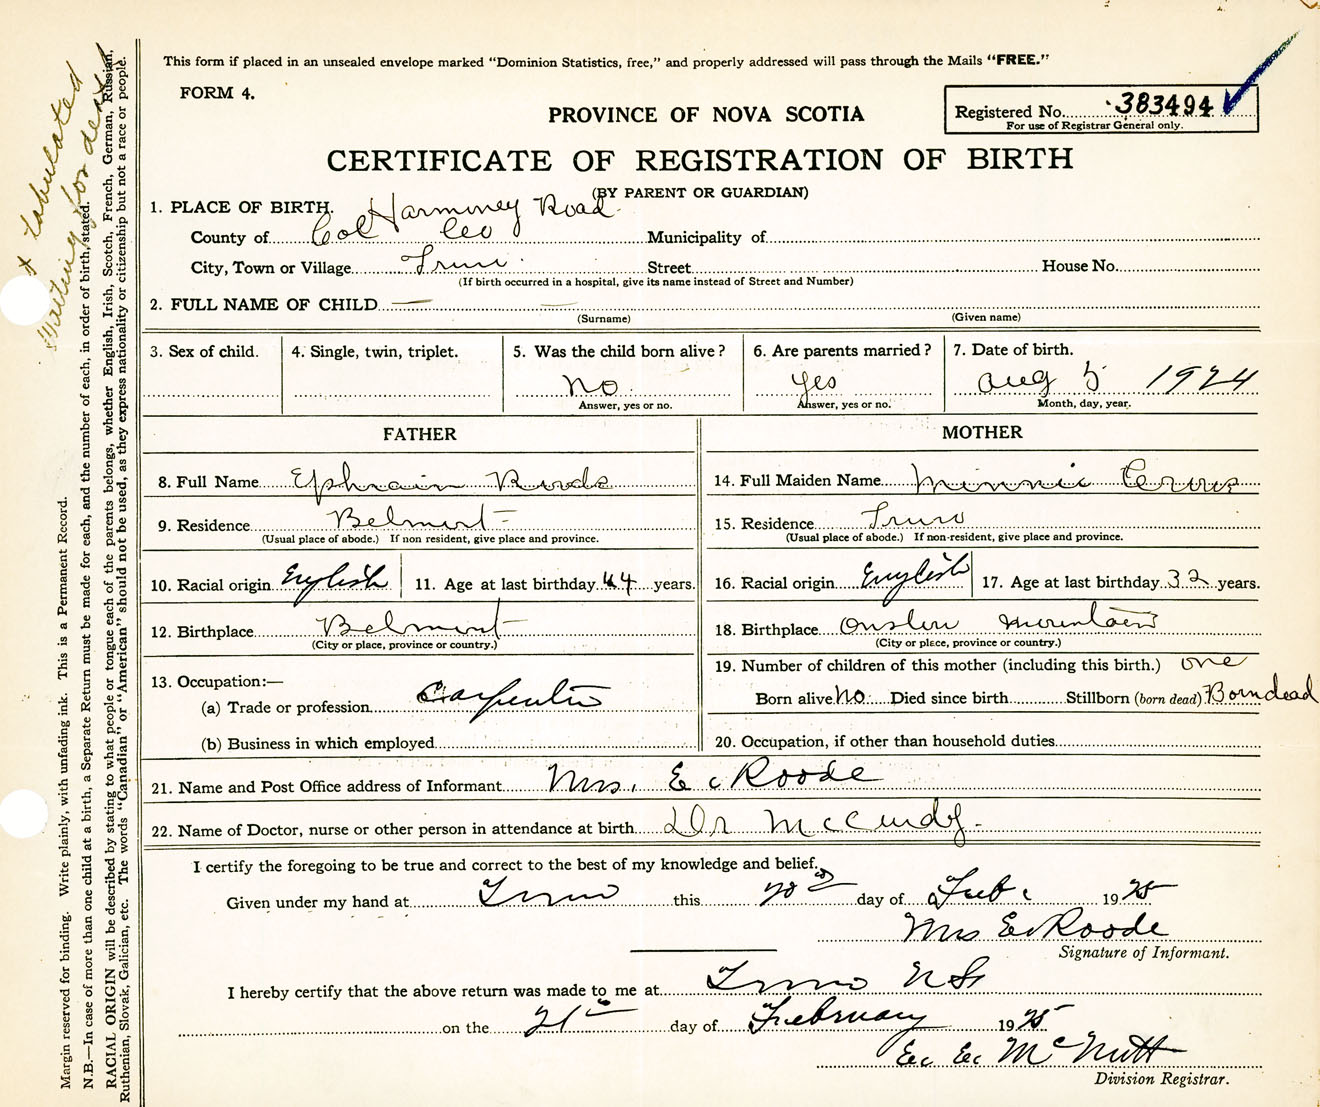 This form if placed in an unsealed envelope marked "Dominion Statistics, free," and properly addressed will pass through the Mails "FREE."
FORM 4.
PROVINCE OF NOVA SCOTIA
Registered No. 383494
For use of Registrar General only.
CERTIFICATE OF REGISTRATION OF BIRTH
(BY PARENT OR GUARDIAN)
1. PLACE OF BIRTH. Harmoney Road
County of Col Co Municipality of
City, Town or Village Truro Street House No.
(If birth occurred in a hospital, give its name instead of Street and Number)
2. FULL NAME OF CHILD
(Surname) (Given name)
3. Sex of child. 4. Single, twin, triplet. 5. Was the child born alive? 6. Are parents married? 7. Date of birth.
No yes Aug 5 1924
Answer, yes or no. Answer, yes or no. Month, day, year.
FATHER MOTHER
8. Full Name Ephraim 14. Full Maiden Name Minnie
9. Residence Belmont 15. Residence Truro
(Usual place of abode.) If non resident, give place and province. (Usual place of abode.) If non-resident, give place and province.
10. Racial origin English 11. Age at last birthday 44 years. 16. Racial origin English 17. Age at last birthday 32 years.
12. Birthplace Belmont 18. Birthplace Onslow Mountain
(City or place, province or country.) (City or place, province or country.)
13. Occupation:— 19. Number of children of this mother (including this birth.) one
(a) Trade or profession Carpenter Born alive No Died since birth Stillborn (born dead) Born dead
(b) Business in which employed 20. Occupation, if other than household duties
21. Name and Post Office address of Informant Mrs. E Roode
22. Name of Doctor, nurse or other person in attendance at birth Dr McCurdy.
I certify the foregoing to be true and correct to the best of my knowledge and belief.
Given under my hand at Truro this 20 day of Feb. 1925
Mrs E Roode
Signature of Informant.
I hereby certify that the above return was made to me at Truro NS
on the 21st day of February 1925
McNutt
Division Registrar.
x tabulated
Waiting for death
Margin reserved for binding. Write plainly, with unfading ink. This is a Permanent Record.
N.B.—In case of more than one child at a birth, a Separate Return must be made for each, and the number of each, in order of birth, stated.
RACIAL ORIGIN will be described by stating to what people or tongue each of the parents belongs, whether English, Irish, Scotch, French, German, Russian,
Ruthenian, Slovak, Galician, etc. The words "Canadian" or "American" should not be used, as they express nationality or citizenship but not a race or people.